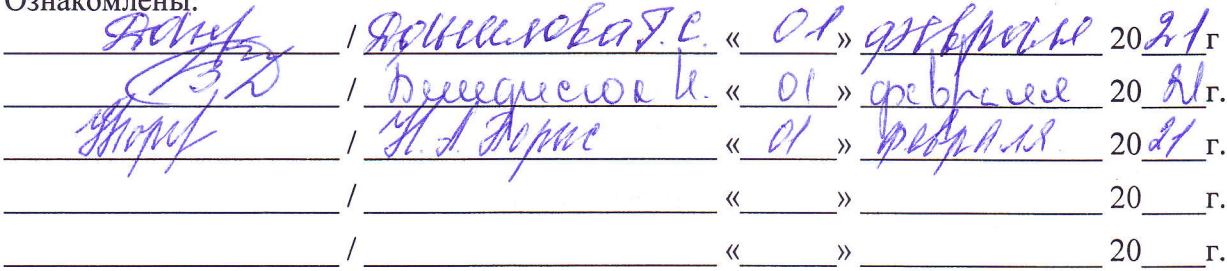 Ознакомлены:
/ Данилова Т.С. « 01 » февраля 2021г
/ И. « 01 » февраля 20 21г.
/ Н.А. « 01 » февраля 20 21 г.
/ « » 20 г.
/ « » 20 г.